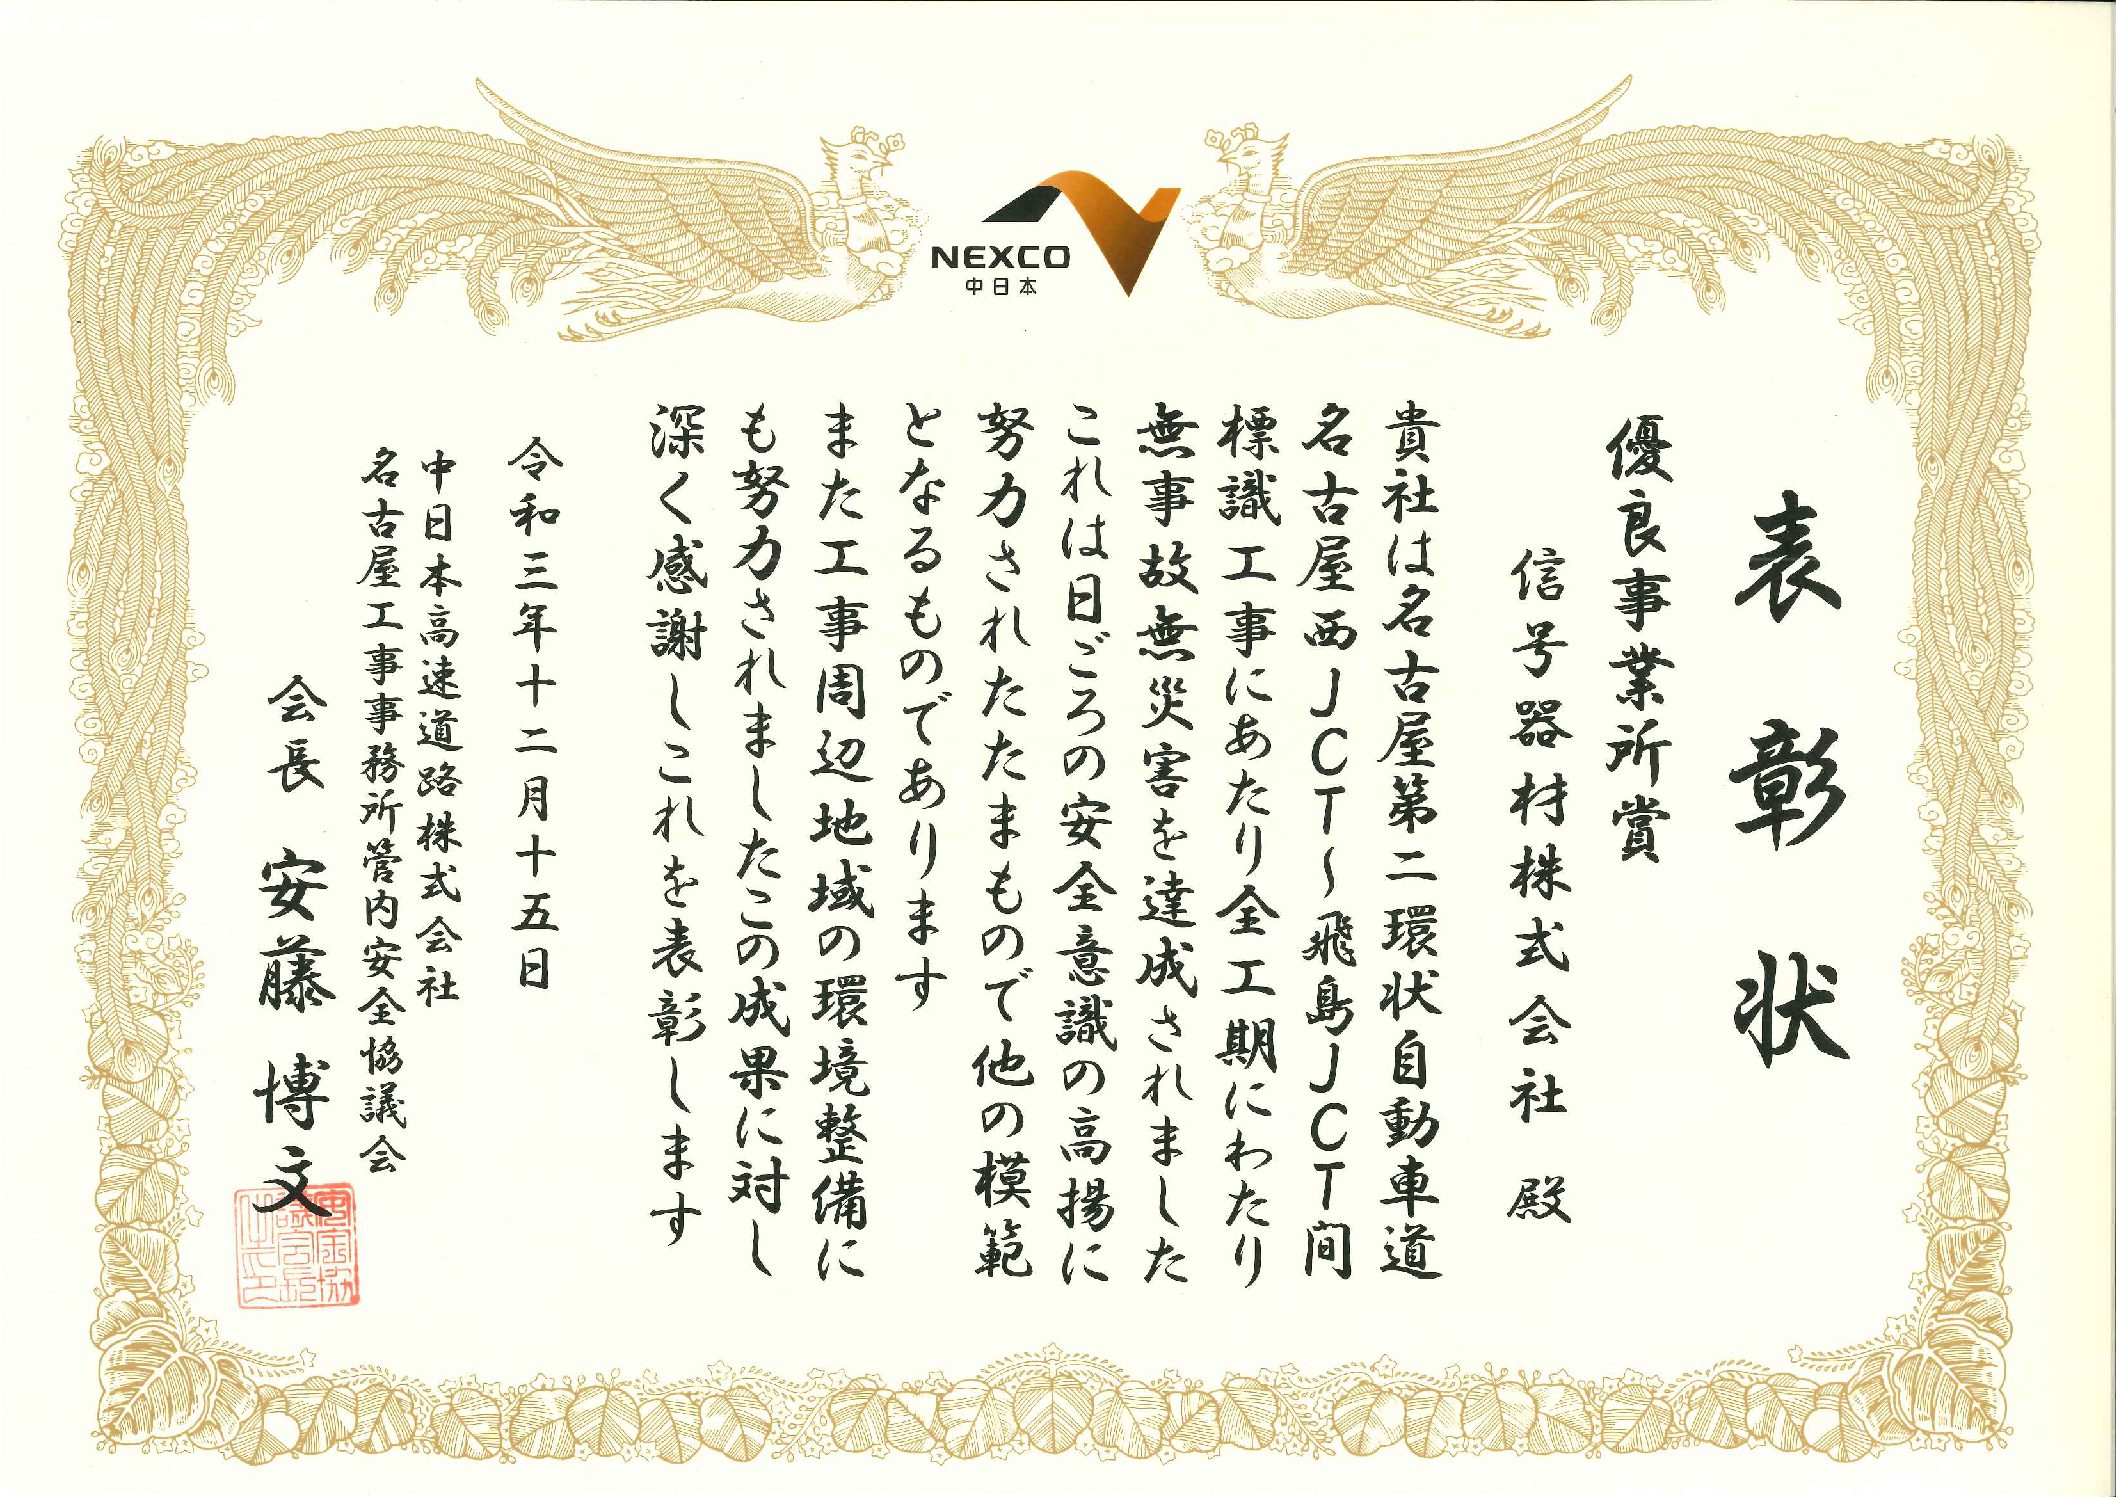 NEXCO
中日本
表彰状
優良事業所賞
信号器材株式会社 殿
貴社は名古屋第二環状自動車道
名古屋西JCT～飛島JCT間
標識工事にあたり全工期にわたり
無事故無災害を達成されました
これは日ごろの安全意識の高揚に
努力されたたまもので他の模範
となるものであります
また工事周辺地域の環境整備に
も努力されましたこの成果に対し
深く感謝しこれを表彰します
令和三年十二月十五日
中日本高速道路株式会社
名古屋工事事務所管内安全協議会
会長 安藤 博文